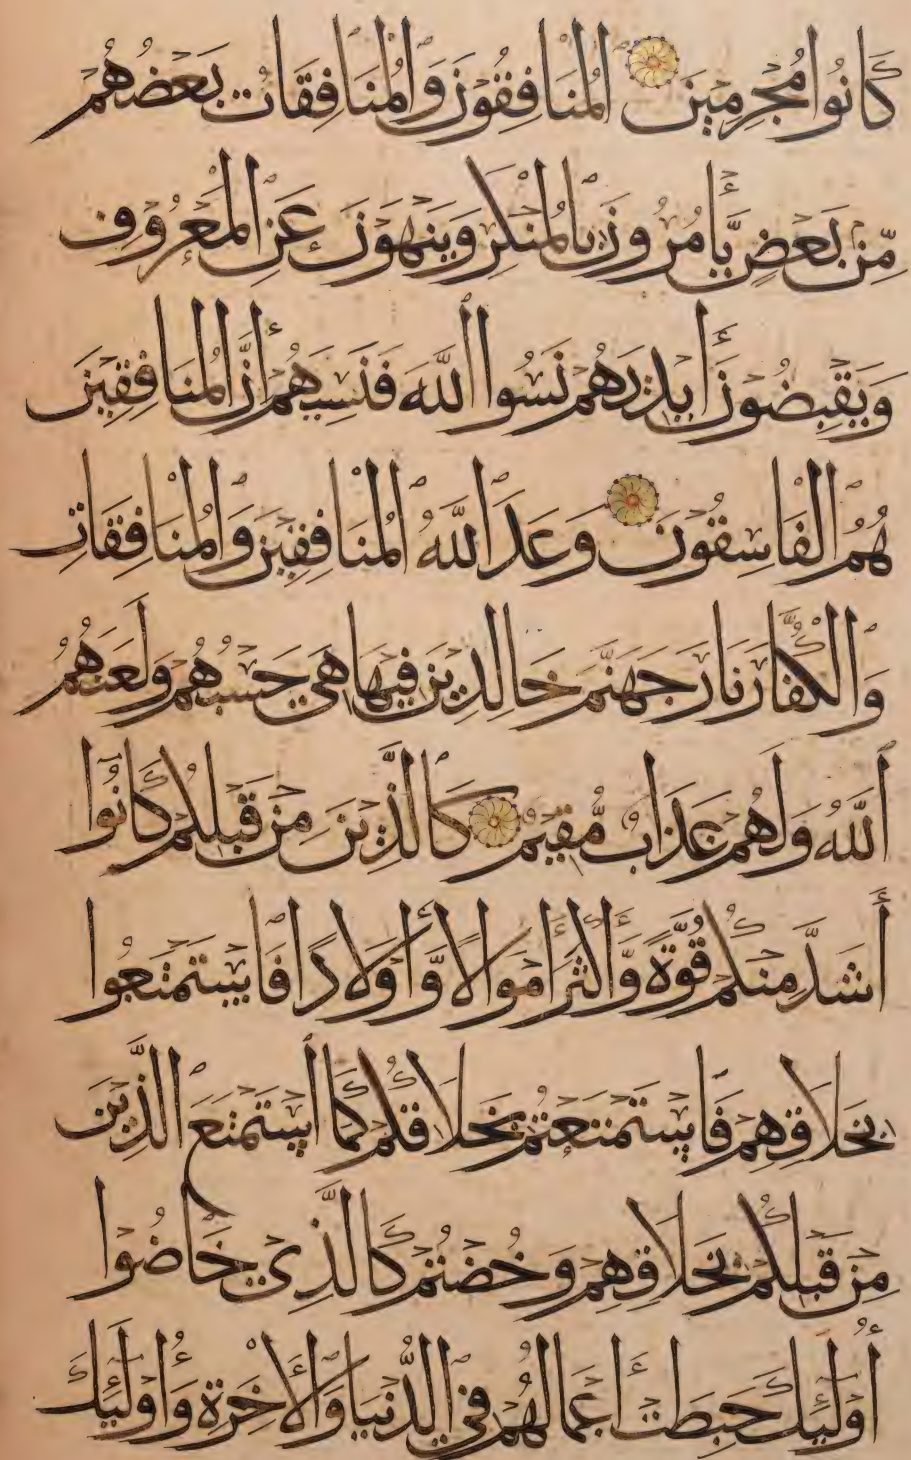 كَانُوا مُجْرِمِينَ الْمُنَافِقُونَ وَالْمُنَافِقَاتُ بَعْضُهُمْ
مِّنْ بَعْضٍ يَّأْمُرُونَ بِالْمُنْكَرِ وَيَنْهَوْنَ عَنِ الْمَعْرُوفِ
وَيَقْبِضُونَ أَيْدِيَهُمْ نَسُوا اللَّهَ فَنَسِيَهُمْ إِنَّ الْمُنَافِقِينَ
هُمُ الْفَاسِقُونَ وَعَدَ اللَّهُ الْمُنَافِقِينَ وَالْمُنَافِقَاتِ
وَالْكُفَّارَ نَارَ جَهَنَّمَ خَالِدِينَ فِيهَا هِيَ حَسْبُهُمْ وَلَعَنَهُمُ
اللَّهُ وَلَهُمْ عَذَابٌ مُّقِيمٌ كَالَّذِينَ مِنْ قَبْلِكُمْ كَانُوا
أَشَدَّ مِنْكُمْ قُوَّةً وَّأَكْثَرَ أَمْوَالًا وَّأَوْلَادًا فَاسْتَمْتَعُوا
بِخَلَاقِهِمْ فَاسْتَمْتَعْتُمْ بِخَلَاقِكُمْ كَمَا اسْتَمْتَعَ الَّذِينَ
مِنْ قَبْلِكُمْ بِخَلَاقِهِمْ وَخُضْتُمْ كَالَّذِي خَاضُوا
أُولَٰئِكَ حَبِطَتْ أَعْمَالُهُمْ فِي الدُّنْيَا وَالْآخِرَةِ وَأُولَٰئِكَ